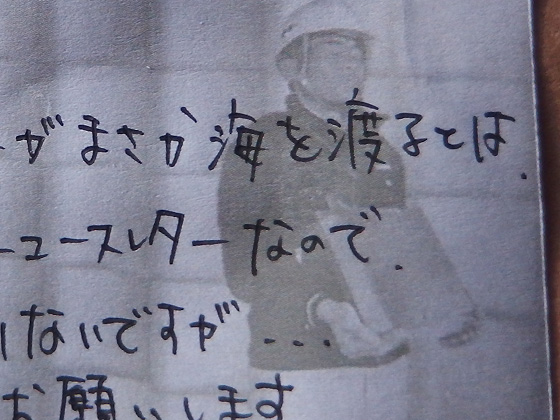 がまさか海を渡るとは.
ュースレターなので.
ないですが...
お願いします